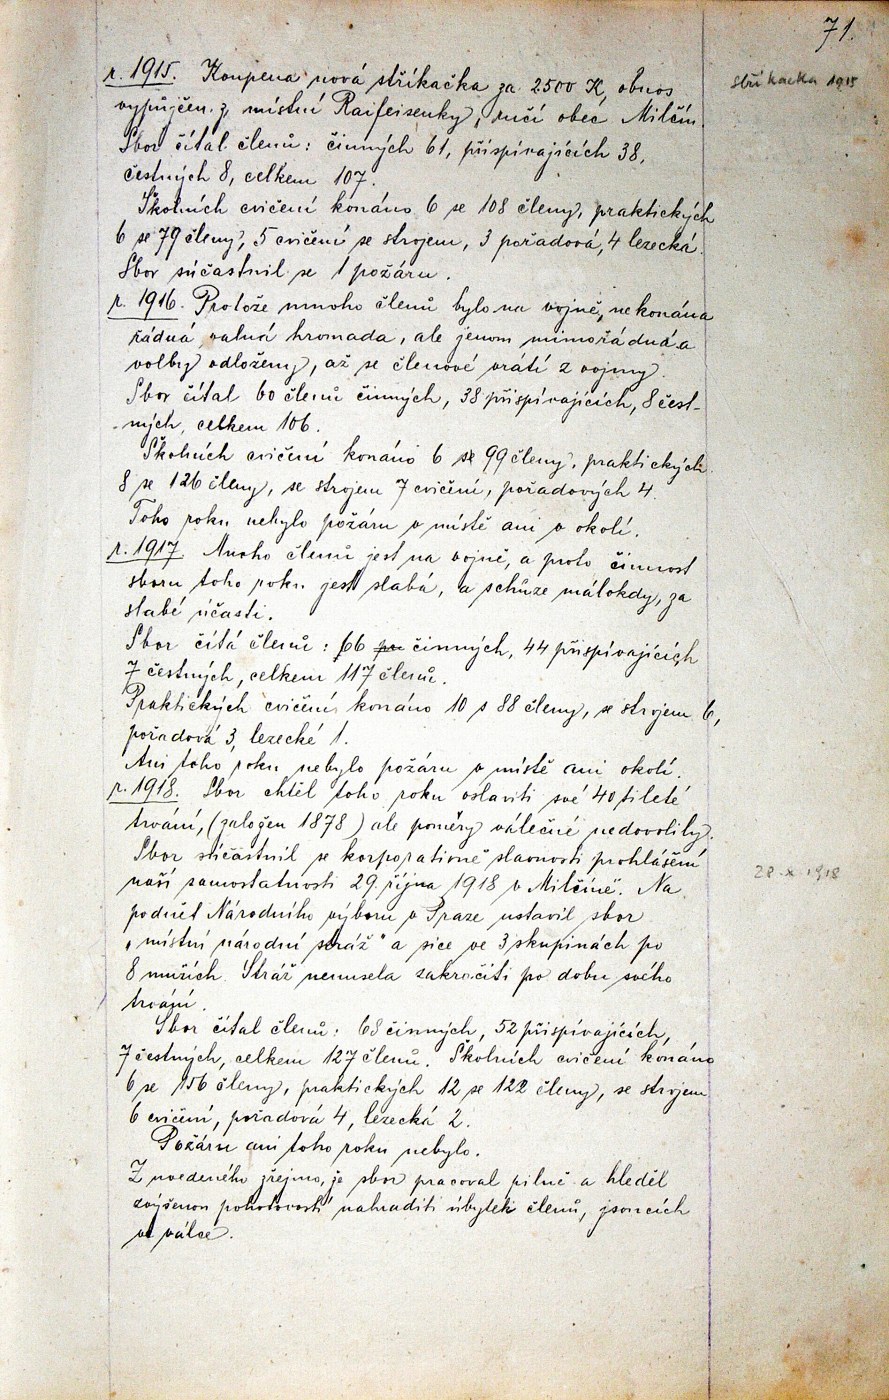 71.
r. 1915. Koupena nová stříkačka za 2500 K, obnos
stříkačka 1915
vypůjčen z místní Raifeisenky, ručí obec Milčín.
Sbor čítal členů: činných 61, přispívajících 38,
čestných 8, celkem 107.
Školních cvičení konáno 6 se 108 členy, praktických
6 se 79 členy, 5 cvičení se strojem, 3 pořadová, 4 lezecká.
Sbor súčastnil se 1 požáru.
r. 1916. Protože mnoho členů bylo na vojně, nekonána
řádná valná hromada, ale jenom mimořádná a
volby odloženy, až se členové vrátí z vojny.
Sbor čítal 60 členů činných, 38 přispívajících, 8 čest-
ných, celkem 106.
Školních cvičení konáno 6 se 99 členy, praktických
8 se 126 členy, se strojem 7 cvičení, pořadových 4.
Toho roku nebylo požáru v místě ani v okolí.
r. 1917. Mnoho členů jest na vojně, a proto činnost
sboru toho roku jest slabá, a schůze málokdy, za
slabé účasti.
Sbor čítá členů: 66 činných, 44 přispívajících
7 čestných, celkem 117 členů.
Praktických cvičení konáno 10 s 88 členy, se strojem 6,
pořadová 3, lezecké 1.
Ani toho roku nebylo požáru v místě ani okolí.
r. 1918. Sbor chtěl toho roku oslaviti své 40tileté
trvání, (založen 1878) ale poměry válečné nedovolily.
Sbor súčastnil se korporativně slavnosti prohlášení
28. X. 1918
naší samostatnosti 29. října 1918 v Milčíně. Na
podnět Národního výboru v Praze ustavil sbor
"místní národní stráž" a sice ve 3 skupinách po
8 mužích. Stráž nemusela zakročiti po dobu svého
trvání.
Sbor čítal členů: 68 činných, 52 přispívajících,
7 čestných, celkem 127 členů. Školních cvičení konáno
6 se 156 členy, praktických 12 se 122 členy, se strojem
6 cvičení, pořadová 4, lezecká 2.
Požáru ani toho roku nebylo.
Z uvedeného zřejmo, že sbor pracoval pilně a hleděl
zvýšenou pohotovostí nahraditi úbytek členů, jsoucích
ve válce.